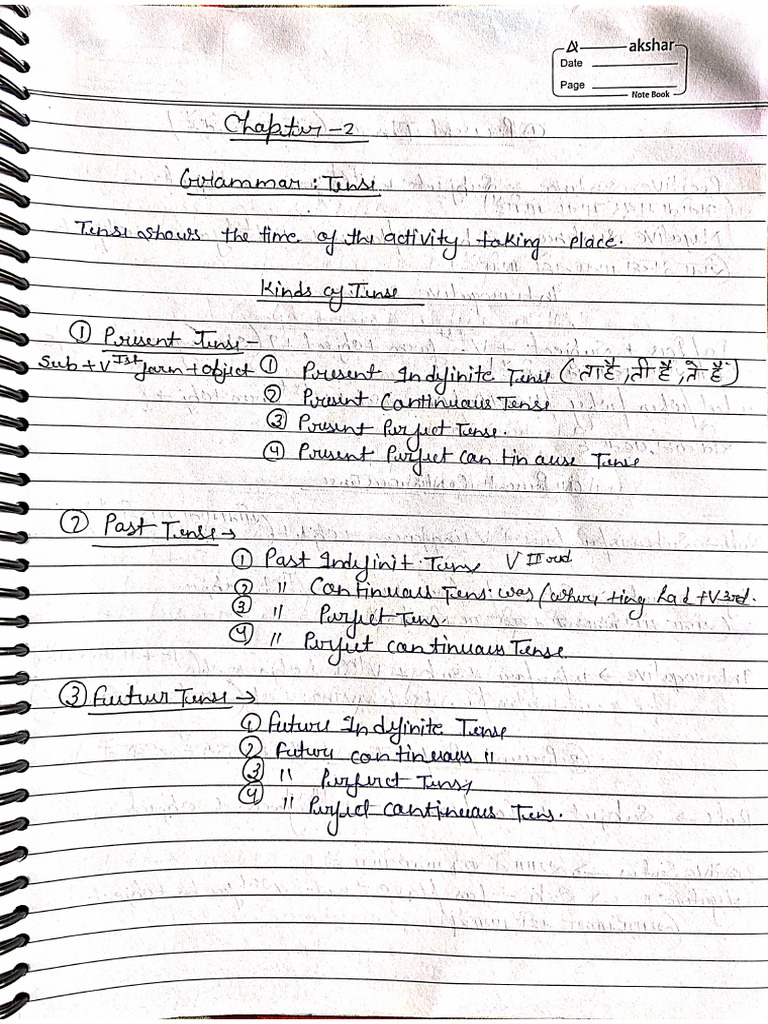 akshar
Date
Page
Note Book
Chapter-2
Grammar: Tense
Tense shows the time of the activity taking place.
Kinds of Tense
① Present Tense -
Sub + V Ist form + object ① Present Indefinite Tense (ता है, ती है, ते हैं)
② Present Continuous Tense
③ Present Perfect Tense.
④ Present Perfect continause Tense
② Past Tense →
① Past Indifinit Tense V IIrd
② " Continuous Tens: was / +ing had + V3rd.
③ " Perfect Tens.
④ " Perfect continuous Tense
③ Future Tense →
① Future Indefinite Tense
② Future continuous "
③ " Perferct Tens,
④ " Perfect continuous Tens.